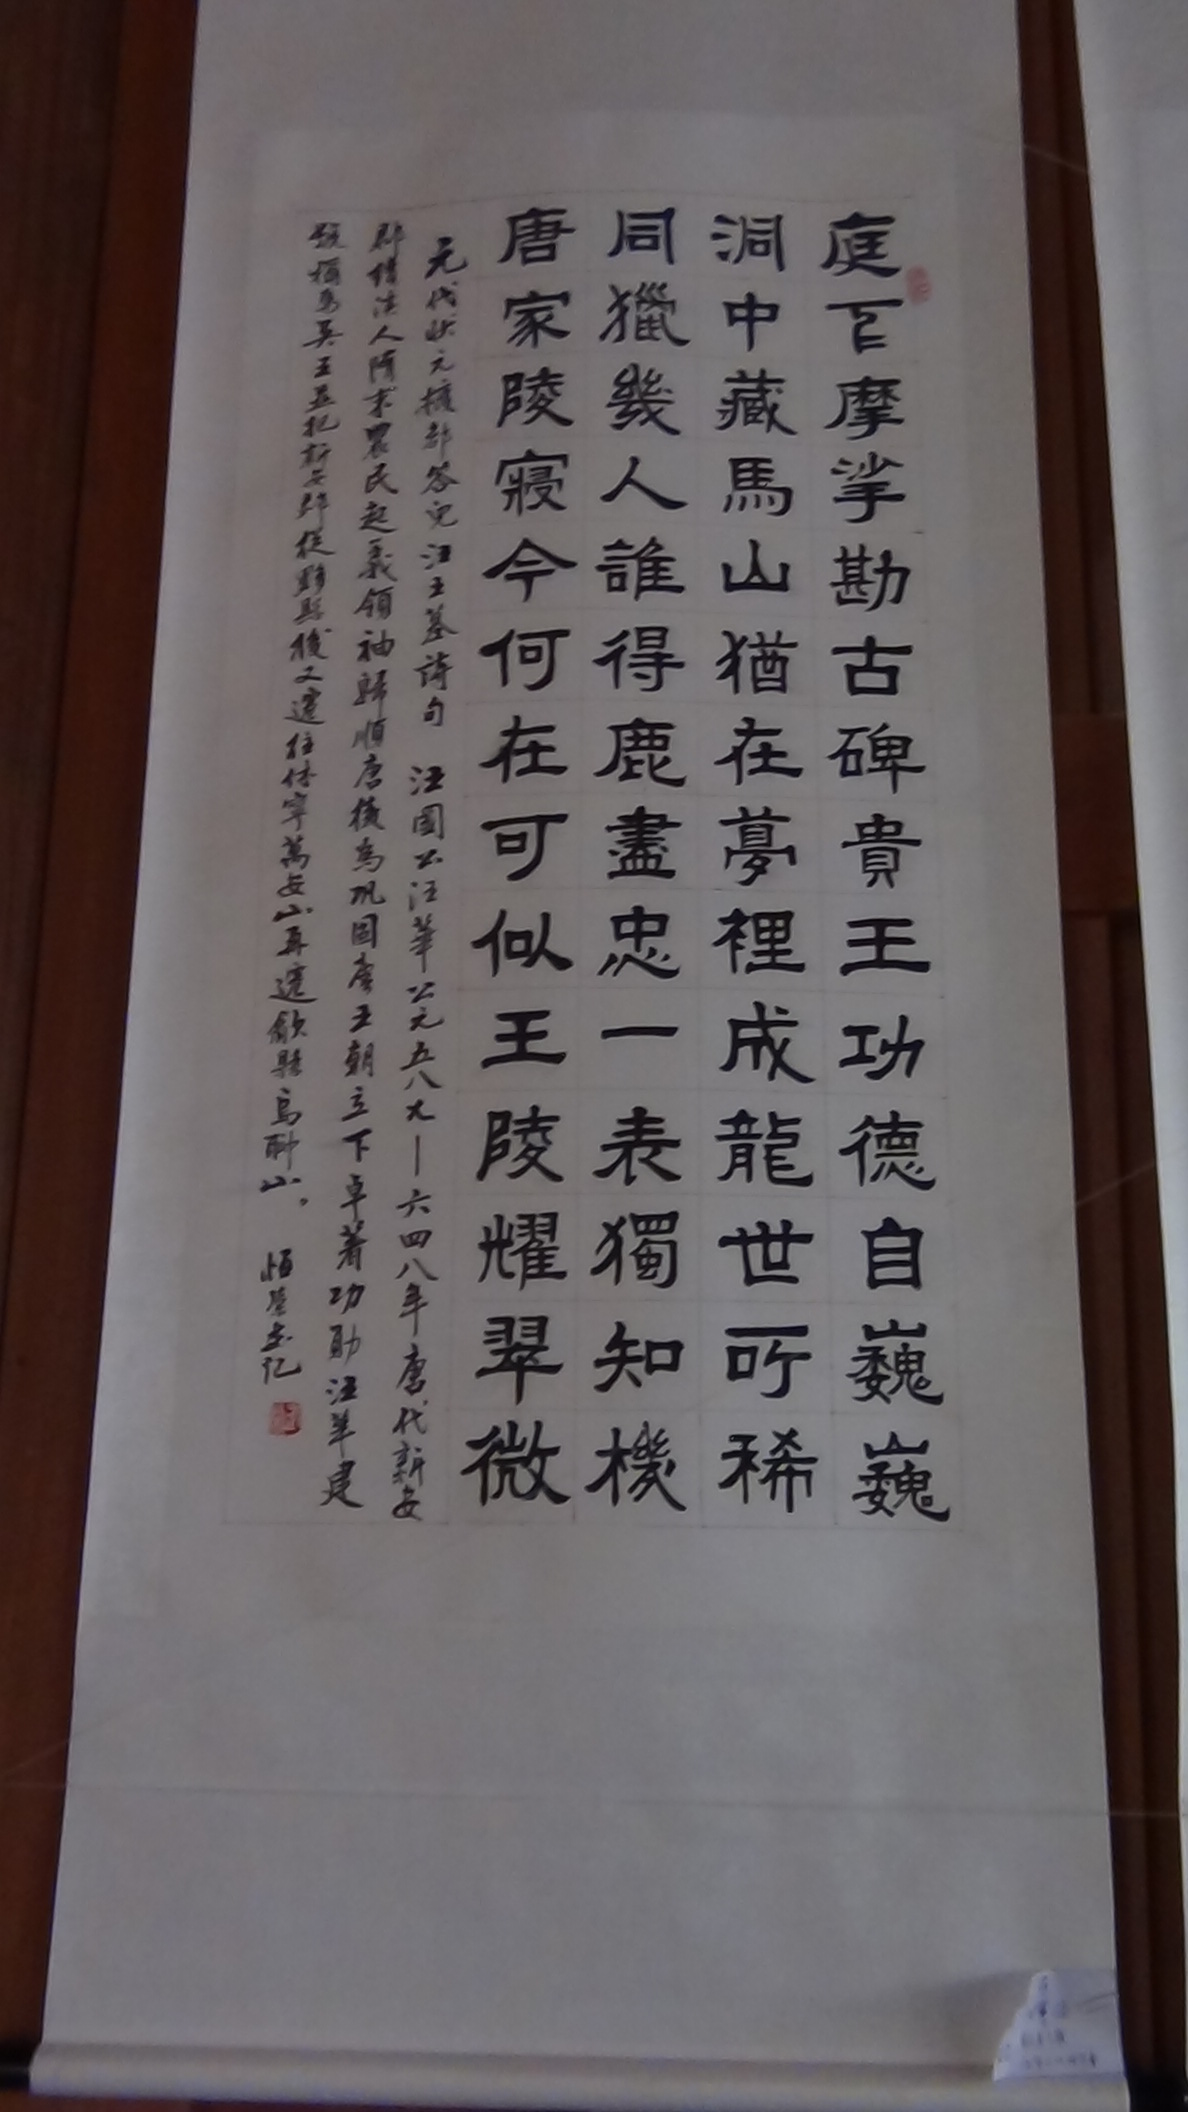 庭下摩挲勘古碑貴王功德自巍巍
洞中藏馬山猶在夢裡成龍世所稀
同獵幾人誰得鹿盡忠一表獨知機
唐家陵寢今何在可似王陵耀翠微
元代狀元 汪王墓詩句 汪國公汪華公元五八六—六四八年唐代新安
郡 人隋末農民起義領袖歸順唐後為鞏固唐王朝立下卓著功勛汪華建
號稱為吳王並把新安郡從黟縣後又遷往休寧萬安山再遷歙縣烏聊山。